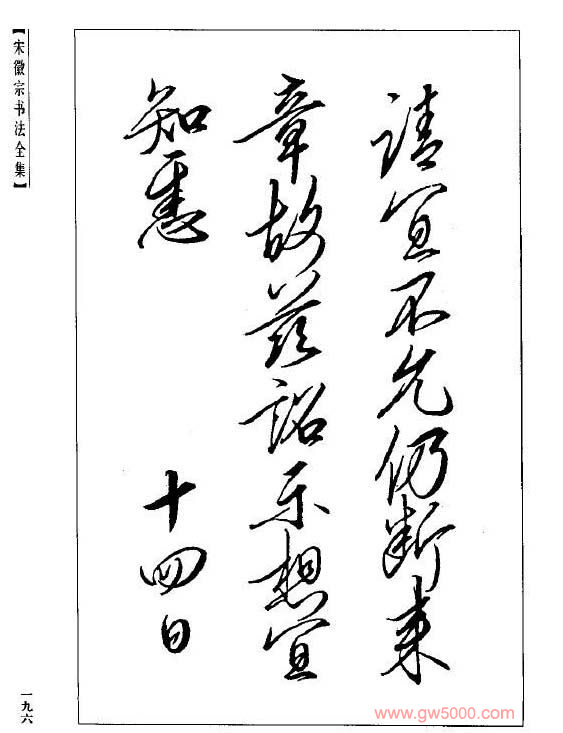 【宋徽宗书法全集】
請宜不允仍断来
章故茲詔示想宜
知悉
十四日
一九六
www.gw5000.com